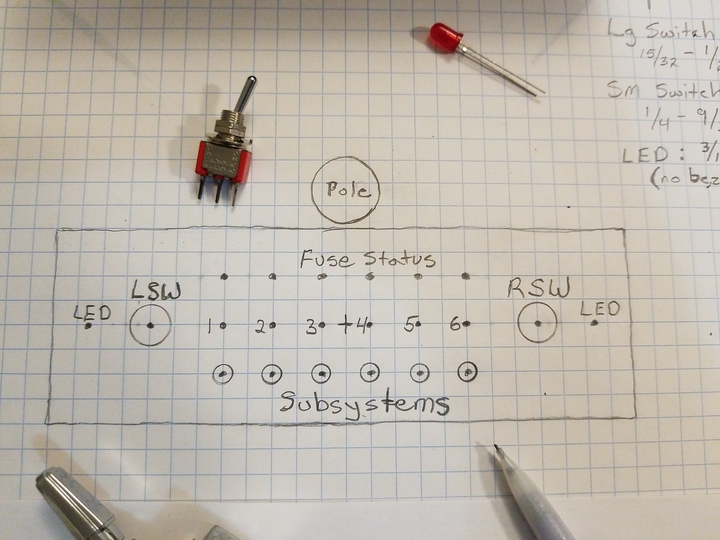 Lg Switch
15/32 - 1/2
Sm Switch
1/4 - 9/
LED: 3/1
(no bez
Pole
Fuse Status
LSW
RSW
LED
LED
1 2 3 + 4 5 6
Subsystems